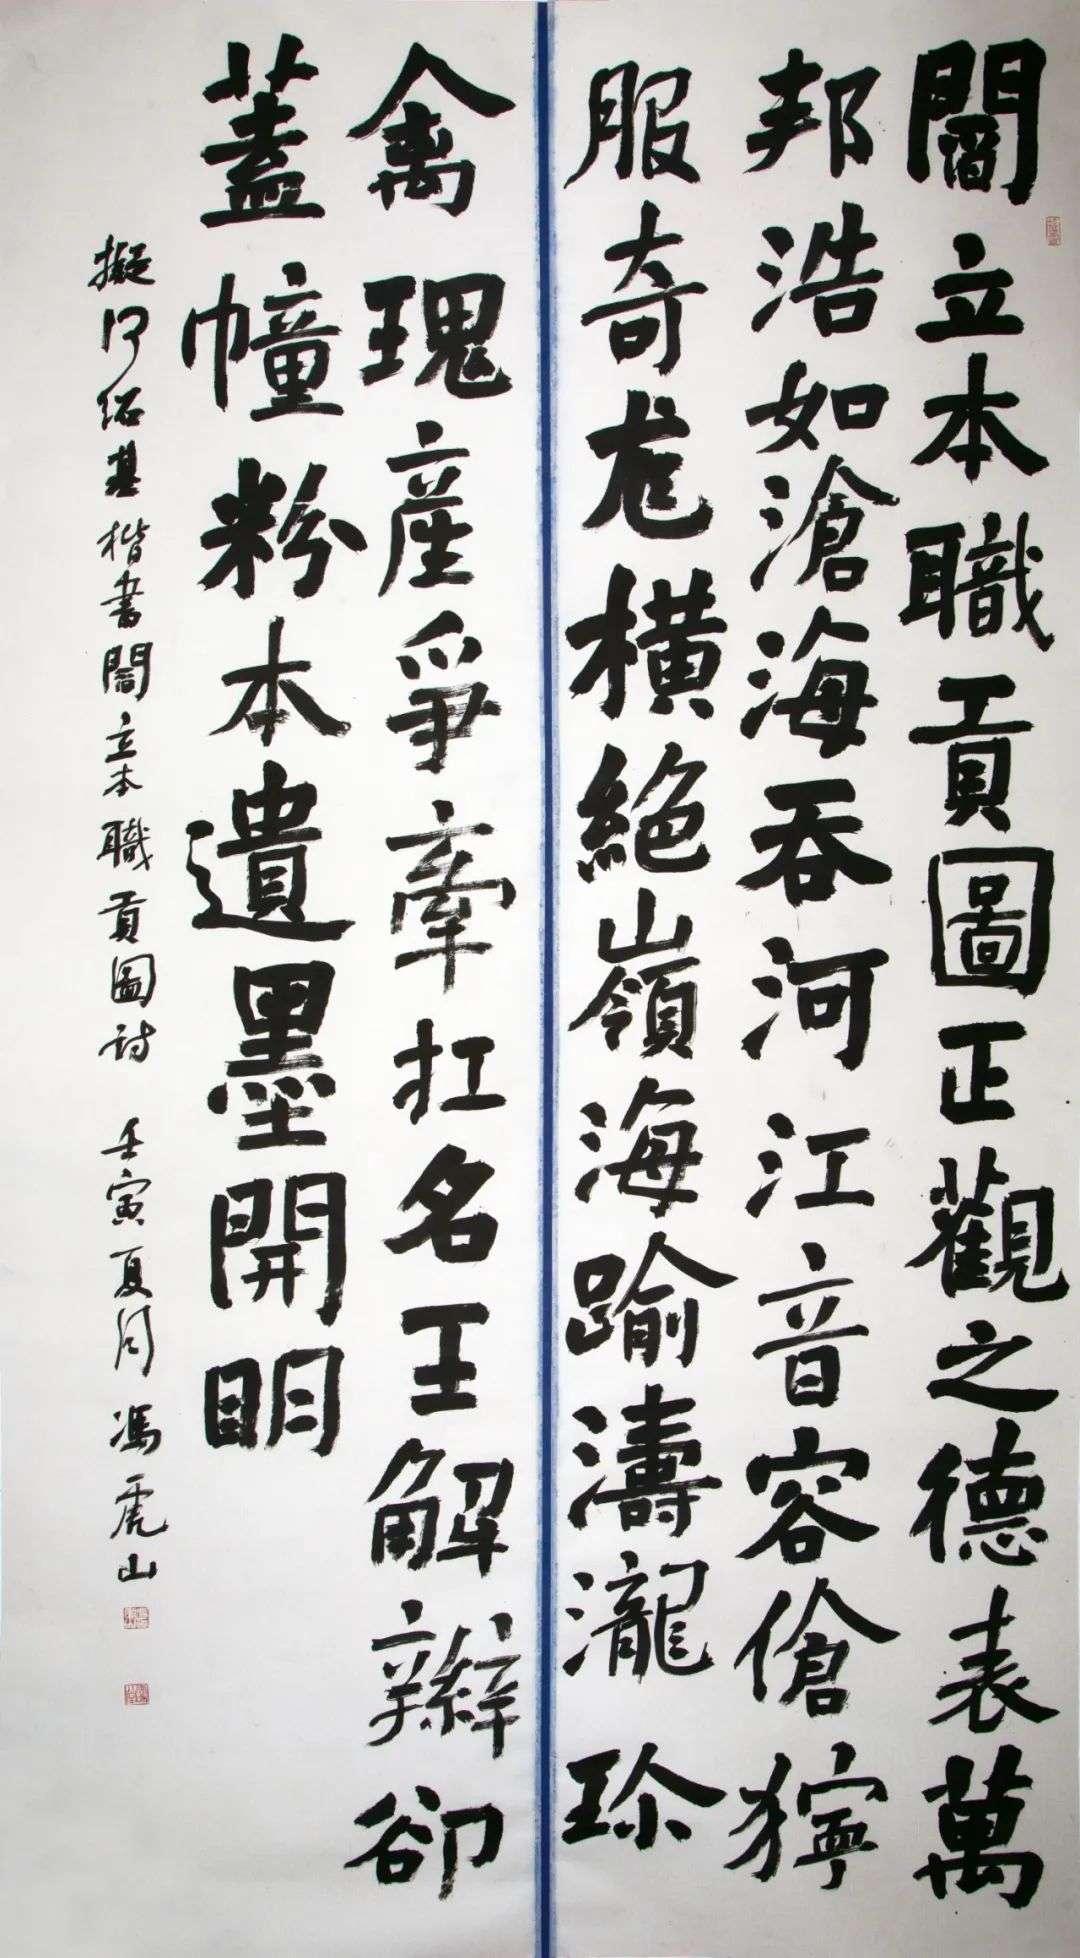 閻立本職貢圖正觀之德表萬
邦浩如滄海吞河江音容傖獰
服奇尨橫絕嶺海踰濤瀧珍
禽瑰產爭牽扛名王解辮卻
蓋幢粉本遺墨開眀
擬何紹基楷書閻立本職貢圖詩 壬寅夏月馮虎山